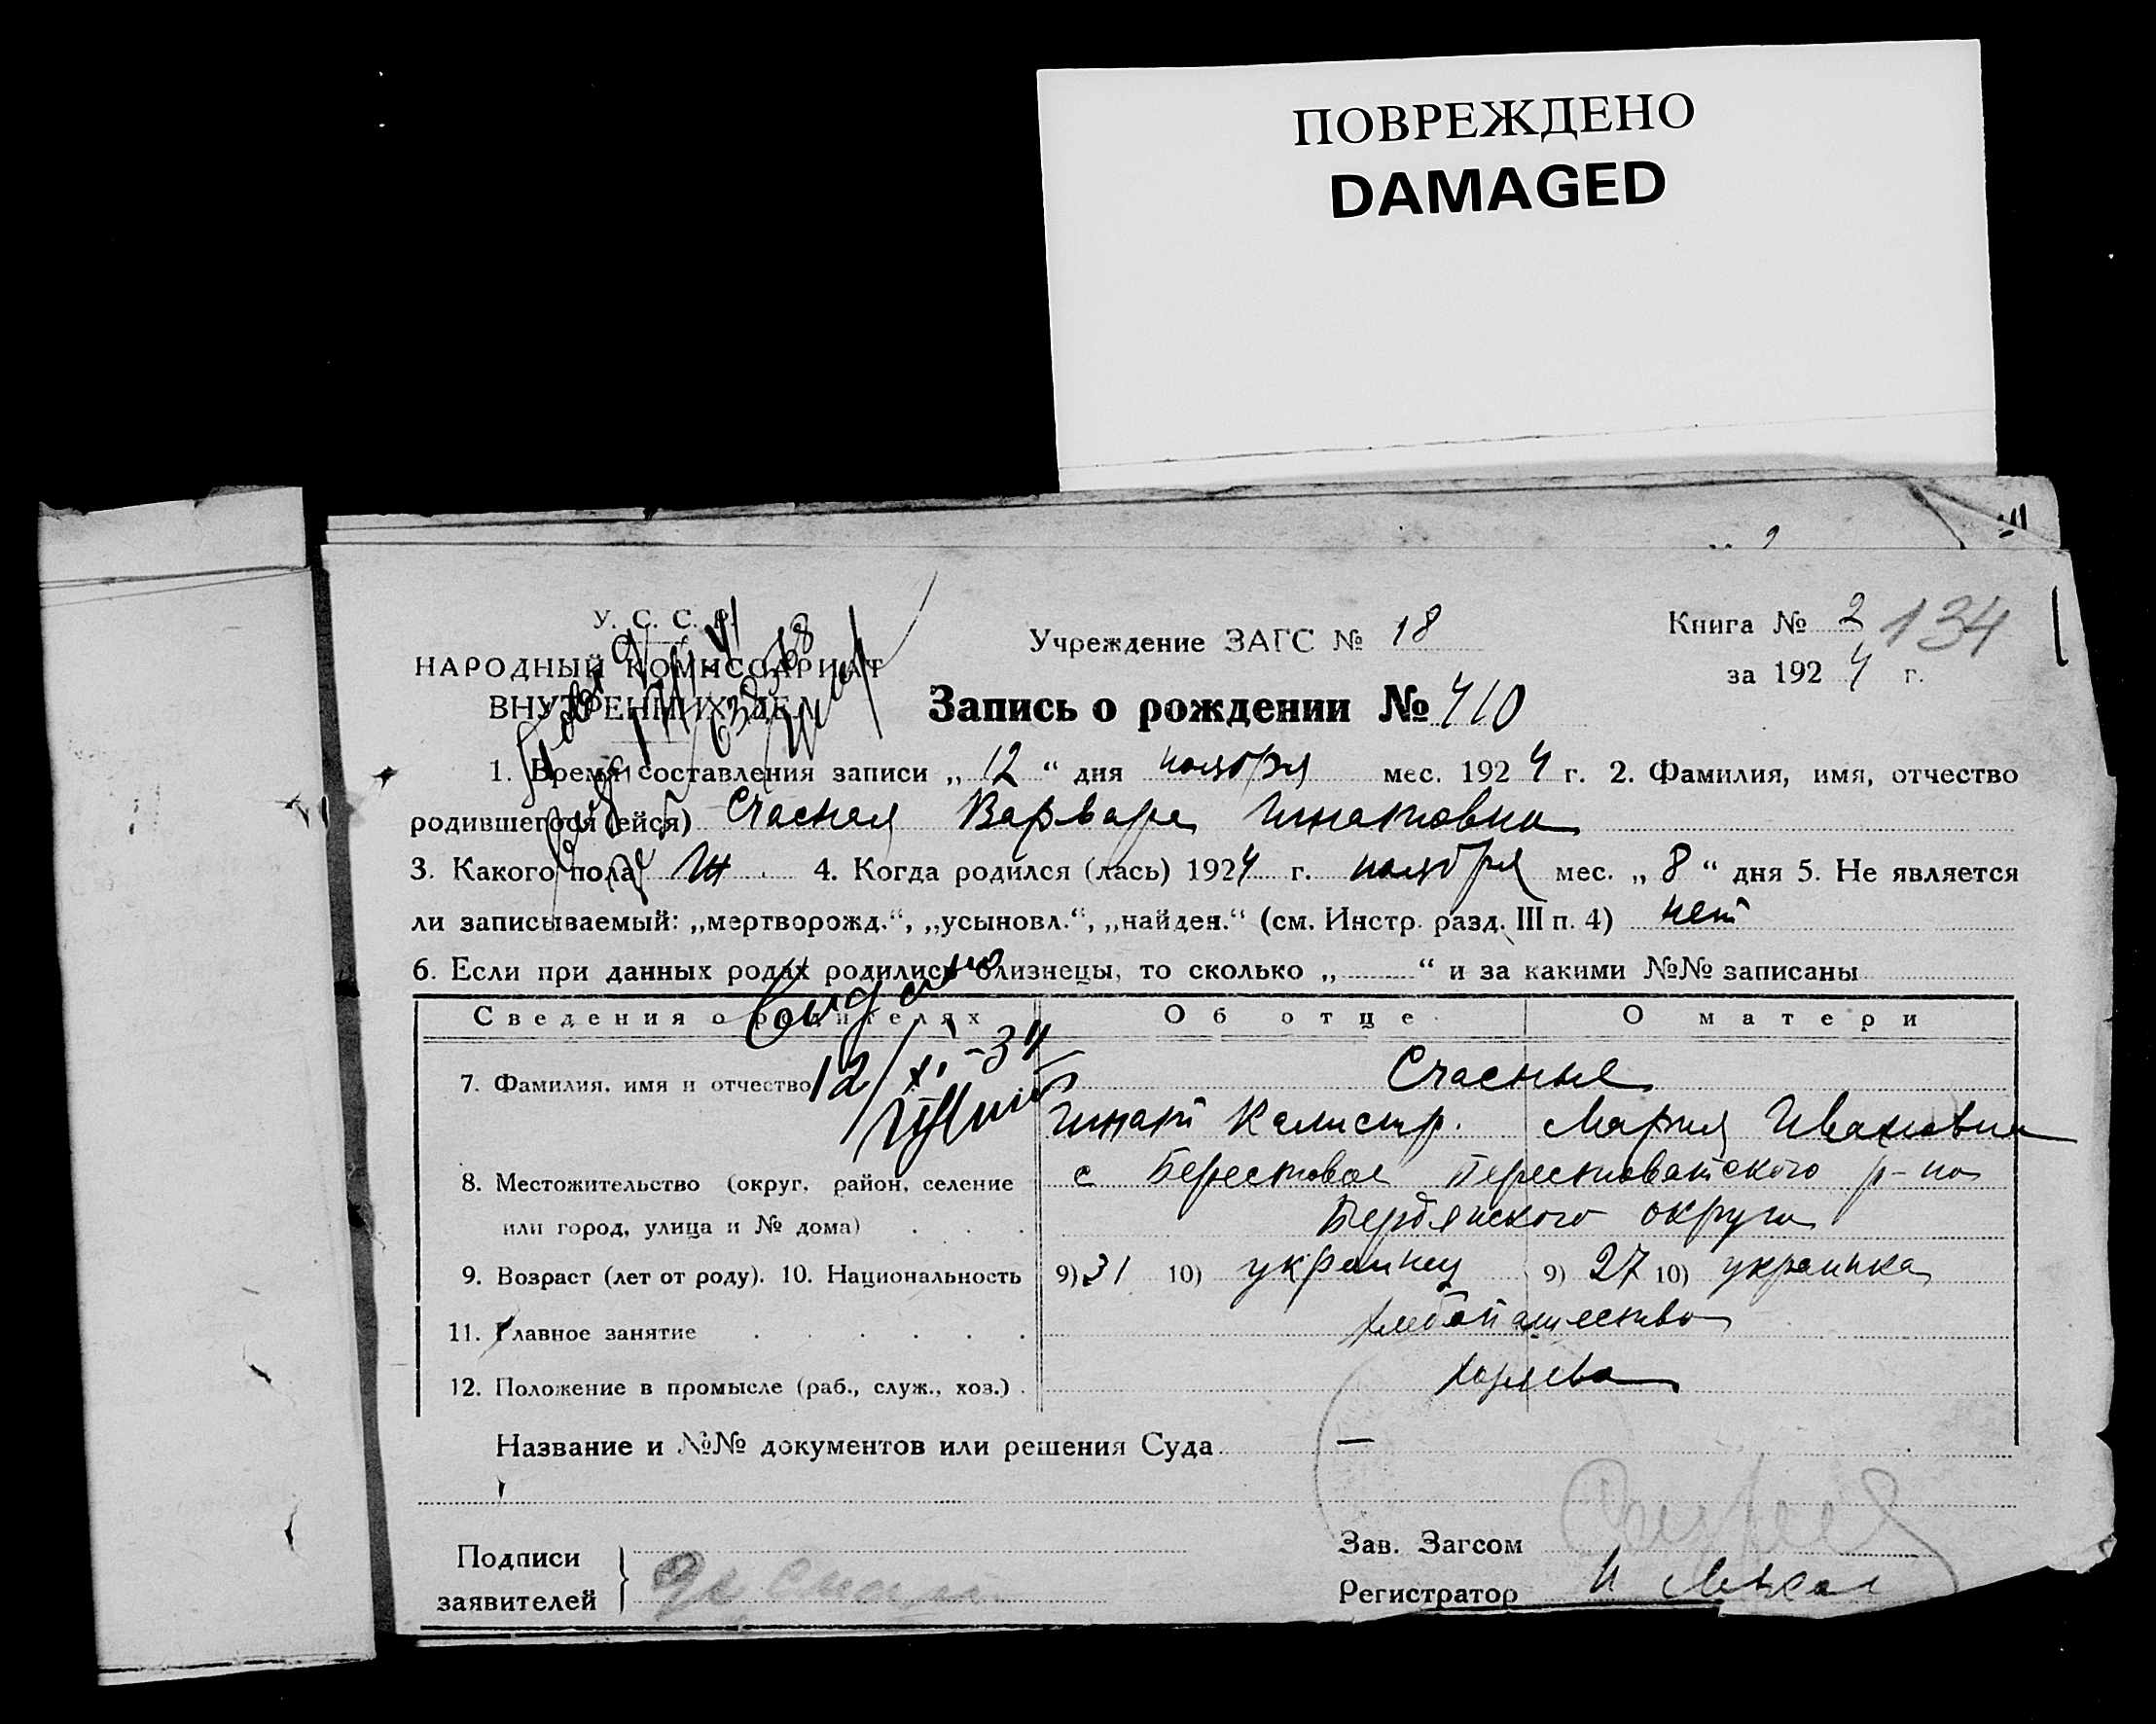 ПОВРЕЖДЕНО
DAMAGED
У. С. С. Р.
НАРОДНЫЙ КОМИССАРИАТ
ВНУТРЕННИХ ДЕЛ
Учреждение ЗАГС № 18
Книга № 2 134
за 1924 г.
Запись о рождении № 410
1. Время составления записи „ 12 “ дня ноября мес. 1924 г. 2. Фамилия, имя, отчество
родившегося (ейся) Счасная Варвара Игнатовна
3. Какого пола Ж. 4. Когда родился (лась) 1924 г. ноября мес. „ 8 “ дня 5. Не является
ли записываемый: „мертворожд.“, „усыновл.“, „найден.“ (см. Инстр. разд. III п. 4) нет
6. Если при данных родах родились близнецы, то сколько „ “ и за какими №№ записаны
Сведения о родителях Об отце О матери
12/XI-34
7. Фамилия, имя и отчество Счасные
Игнат Калистр. Мария Ивановна
8. Местожительство (округ, район, селение с Берестовое Берестоватского р-на
или город, улица и № дома) . . . Бердянского округа
9. Возраст (лет от роду). 10. Национальность 9) 31 10) украинец 9) 27 10) украинка
11. Главное занятие . . . . . . хлебопашество
12. Положение в промысле (раб., служ., хоз.) . хозяева
Название и №№ документов или решения Суда —
Подписи
заявителей
Зав. Загсом
Регистратор